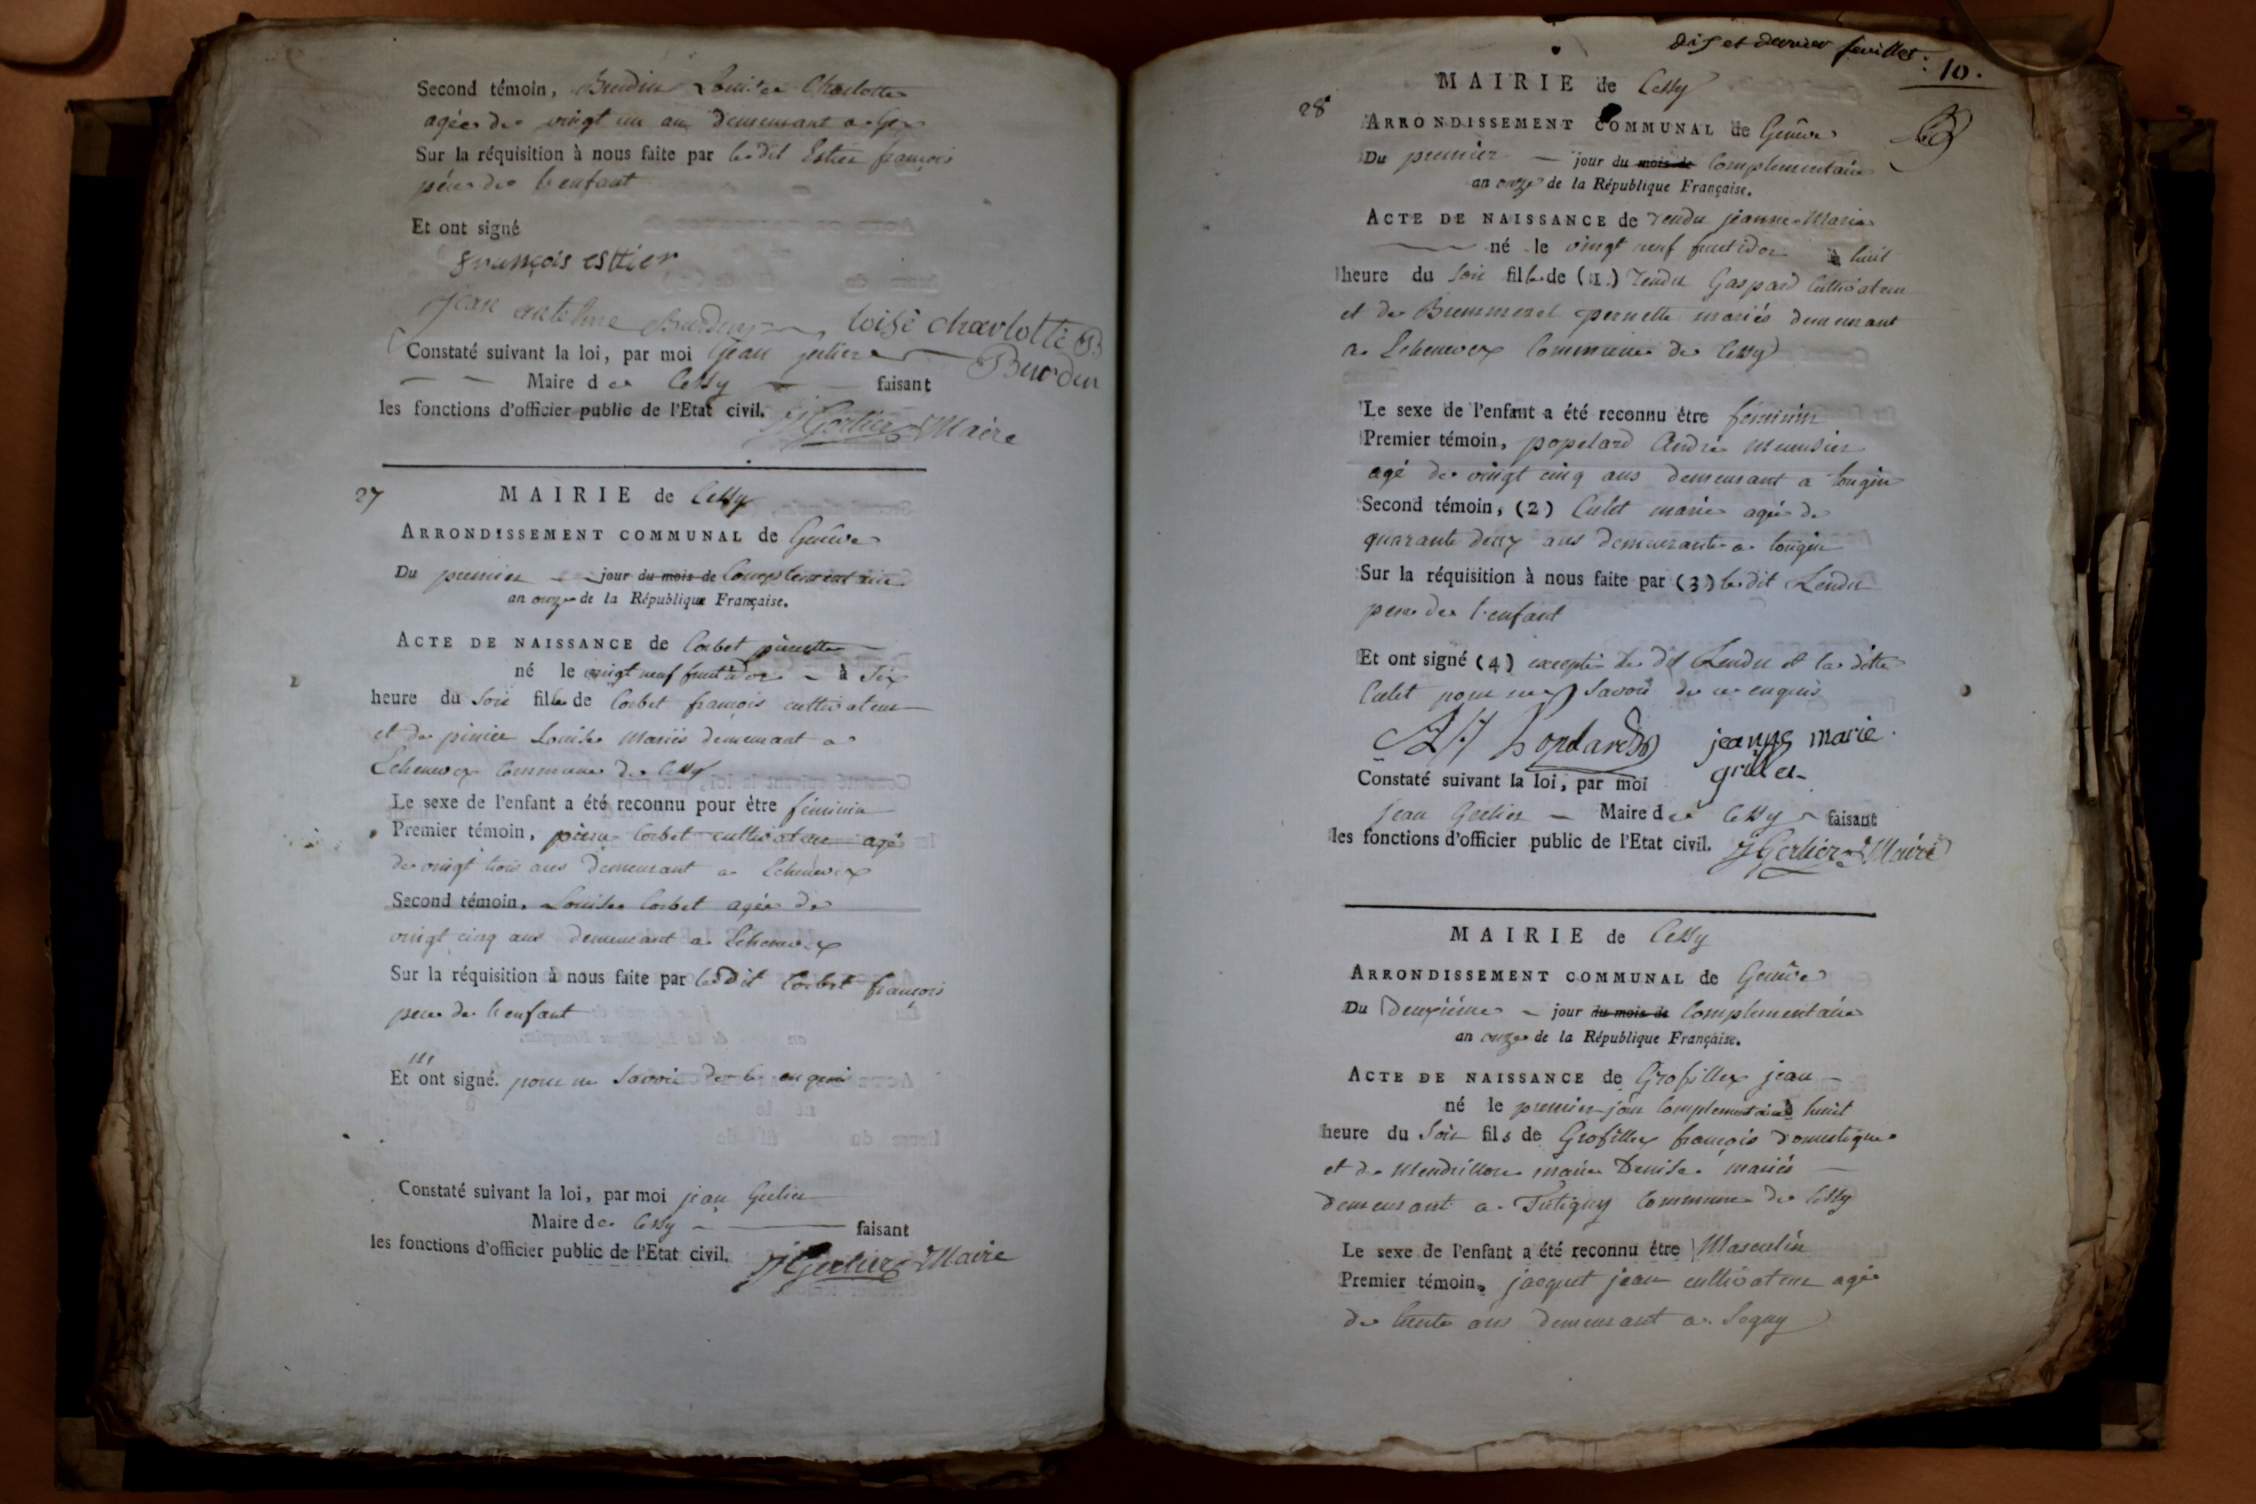 Second témoin, Burdin Louise Charlotte
agée de vingt un an demeurant a Gex
Sur la réquisition à nous faite par le dit Estier françois
père de l'enfant
Et ont signé
françois esttier
jean antelme Burdin loise charlotte B
Burdin
Constaté suivant la loi, par moi Jean Gerlier
Maire de Cessy faisant
les fonctions d'officier public de l'Etat civil. J Gerlier Maire
27
MAIRIE de Cessy
ARRONDISSEMENT COMMUNAL de Genêve
Du premier jour du mois de Complementaire
an onze de la République Française.
ACTE DE NAISSANCE de Corbet pernette
né le vingt neuf fructidor à six
heure du soir fille de Corbet françois cultivateur
et de pinier Louise mariés demeurant a
Echenevex commune de Cessy
Le sexe de l'enfant a été reconnu pour être féminin
Premier témoin, pierre Corbet cultivateur agé
de vingt trois ans demeurant a Echenevex
Second témoin, Louise Corbet agée de
vingt cinq ans demeurant a Echenevex
Sur la réquisition à nous faite par le dit Corbet françois
pere de l'enfant
Et ont signé. pour ne savoir de ce enquis
Constaté suivant la loi, par moi jean Gerlier
Maire de Cessy faisant
les fonctions d'officier public de l'Etat civil. J Gerlier Maire
dix et dernier feuillet : 10.
28
MAIRIE de Cessy
ARRONDISSEMENT COMMUNAL de Genêve
Du premier jour du mois de Complementaire
an onze de la République Française.
ACTE DE NAISSANCE de rendu jeanne Marie
né le vingt neuf fructidor à huit
heure du soir fille de (1.) rendu Gaspard Cultivateur
et de pernette mariés demeurant
a Echenevex Commune de Cessy
Le sexe de l'enfant a été reconnu être féminin
Premier témoin, popelard André menusier
agé de vingt cinq ans demeurant a tougin
Second témoin, (2) Culet marie agée de
quarante deux ans demeurante a tougin
Sur la réquisition à nous faite par (3) le dit Rendu
pere de l'enfant
Et ont signé (4) excepté le dit Rendu et la ditte
Culet pour ne savoir de ce enquis
popelard jeanne marie
grillet
Constaté suivant la loi, par moi
jean Gerlier Maire de Cessy faisant
les fonctions d'officier public de l'Etat civil. J Gerlier Maire
MAIRIE de Cessy
ARRONDISSEMENT COMMUNAL de Genêve
Du Deuxième jour du mois de Complementaire
an onze de la République Française.
ACTE DE NAISSANCE de Grosfillex jean
né le premier jour Complementaire à huit
heure du soir fils de Grosfillex françois domestique
et de Mendrillon marie Denise mariés
demeurant a Tutigny Commune de Cessy
Le sexe de l'enfant a été reconnu être Masculin
Premier témoin, jacquet jean cultivateur agé
de trente ans demeurant a Segny